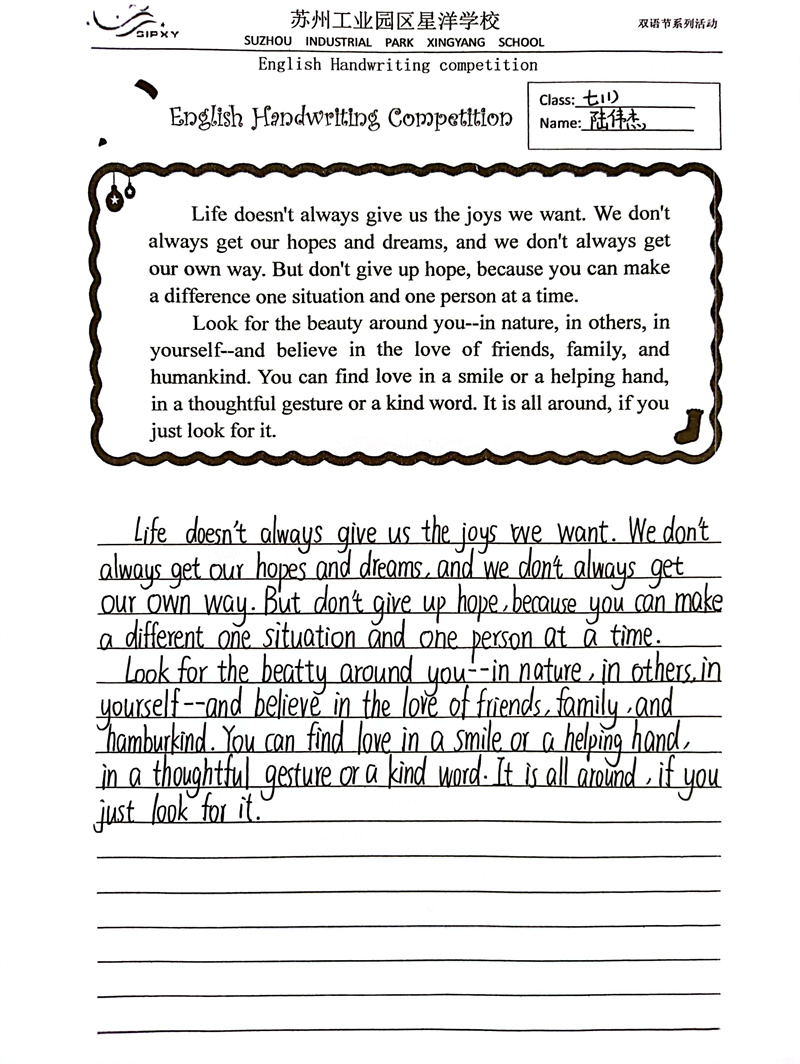 SIPXY
苏州工业园区星洋学校
双语节系列活动
SUZHOU INDUSTRIAL PARK XINGYANG SCHOOL
English Handwriting competition
English Handwriting Competition
Class: 七(1)
Name: 陆伟杰
Life doesn't always give us the joys we want. We don't
always get our hopes and dreams, and we don't always get
our own way. But don't give up hope, because you can make
a difference one situation and one person at a time.
Look for the beauty around you--in nature, in others, in
yourself--and believe in the love of friends, family, and
humankind. You can find love in a smile or a helping hand,
in a thoughtful gesture or a kind word. It is all around, if you
just look for it.
Life doesn't always give us the joys we want. We don't
always get our hopes and dreams, and we don't always get
our own way. But don't give up hope, because you can make
a different one situation and one person at a time.
Look for the beatty around you--in nature, in others, in
yourself--and believe in the love of friends, family, and
hamburkind. You can find love in a smile or a helping hand,
in a thoughtful gesture or a kind word. It is all around, if you
just look for it.